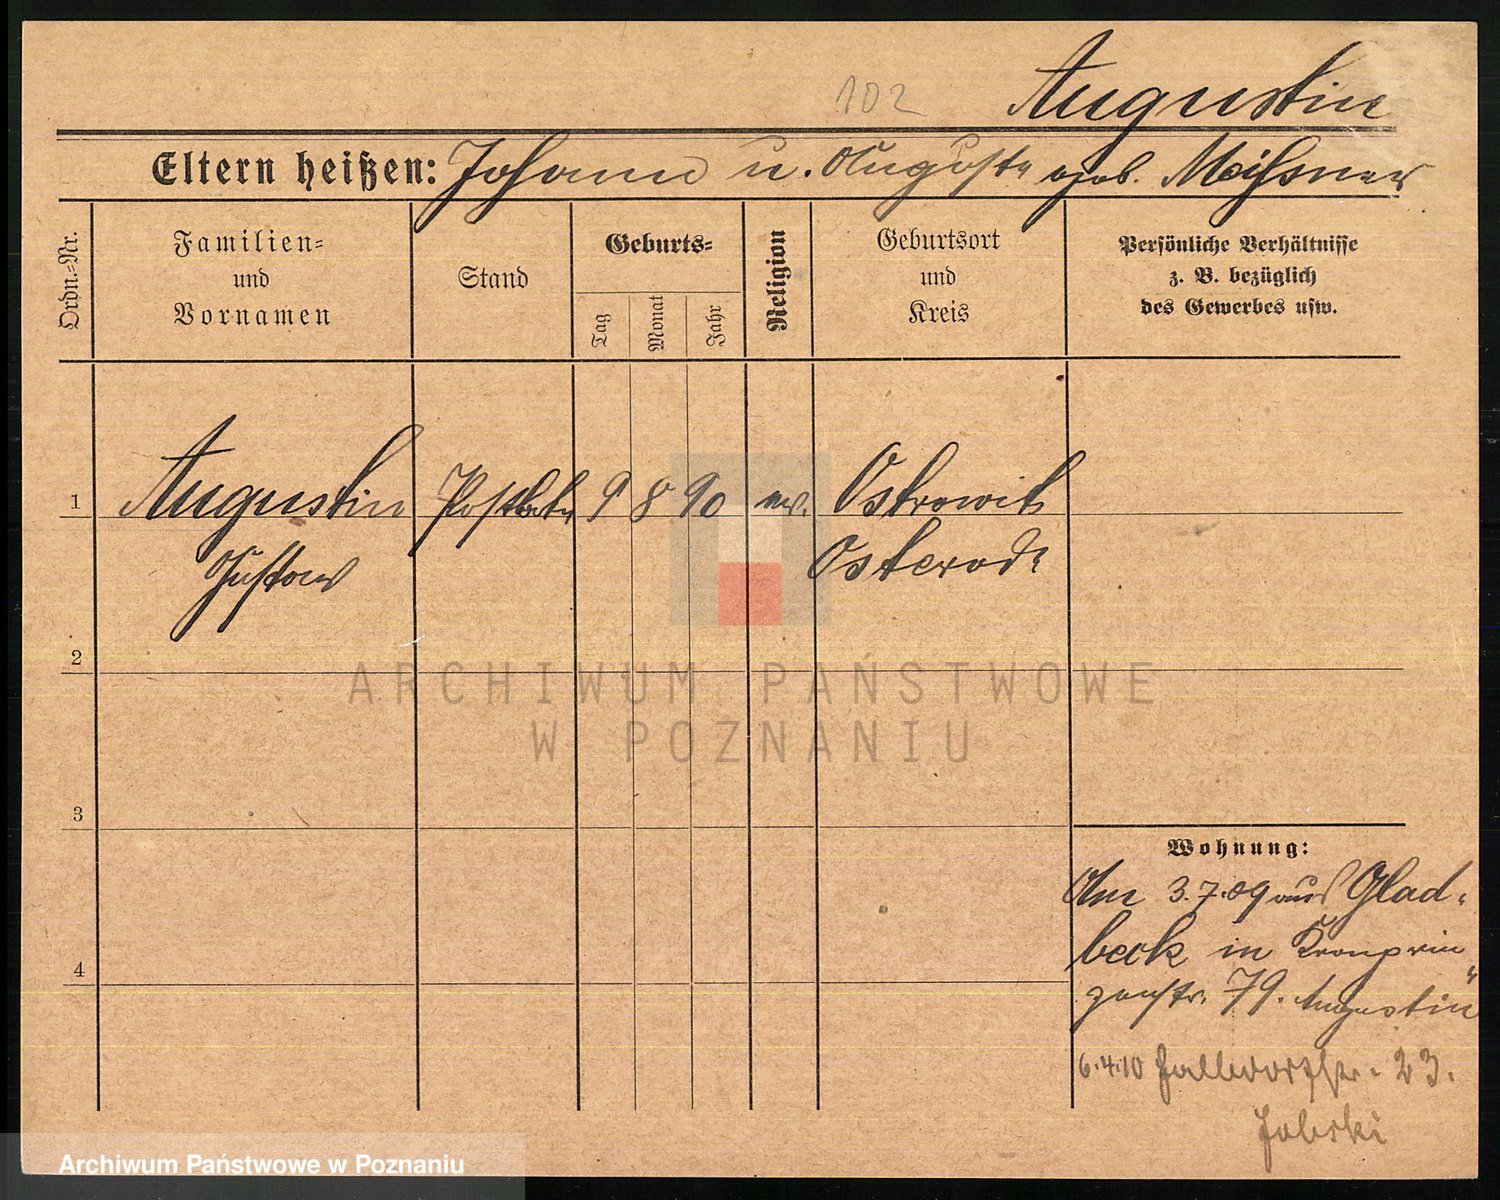 102
Augustin
Eltern heißen: Johann u. Auguste geb. Meißner
Ordn.=Nr.
Familien=
und
Vornamen
Stand
Geburts=
Tag
Monat
Jahr
Religion
Geburtsort
und
Kreis
Persönliche Verhältnisse
z. B. bezüglich
des Gewerbes usw.
1
Augustin
9 8 90
Ostrowitt
Gustav
Osterode
2
ARCHIWUM PAŃSTWOWE
W POZNANIU
3
4
Wohnung:
Am 3.7.09 aus Glad-
beck in Kronprin
zenstr. 79. Augustin
6.4.10 23.
Archiwum Państwowe w Poznaniu